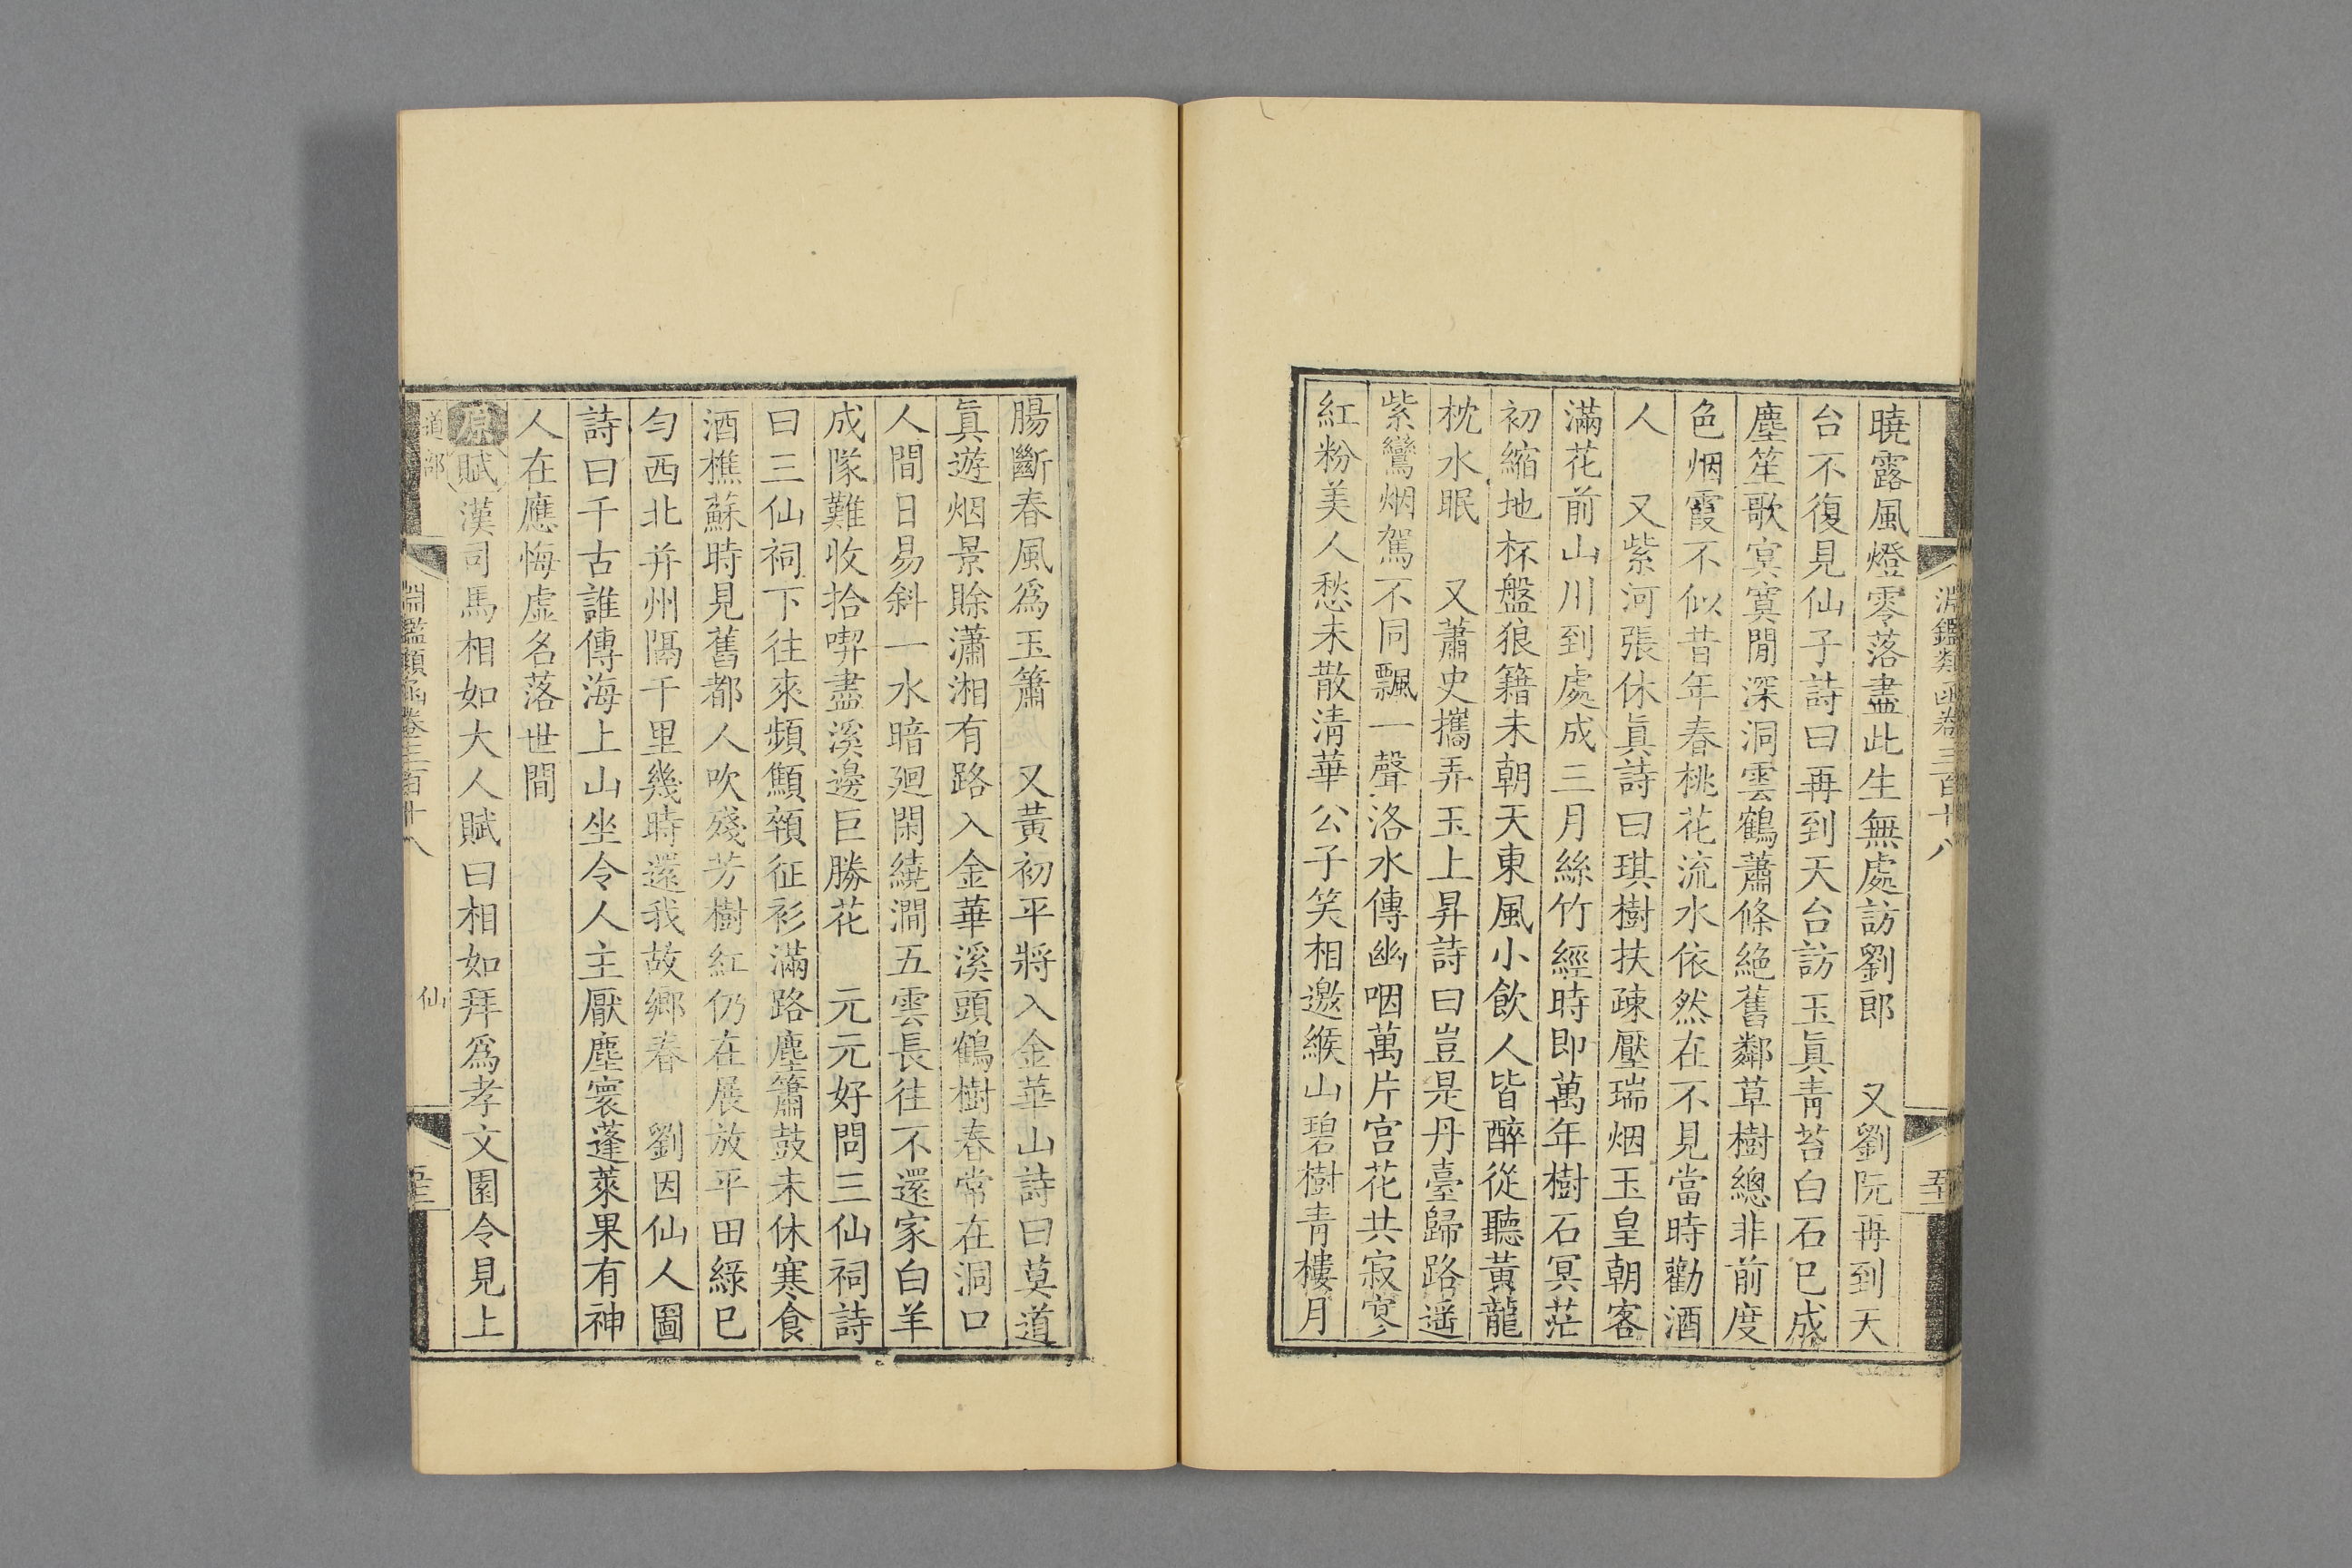 淵鑑類函卷三百十八
曉露風燈零落盡此生無處訪劉郎　又劉阮再到天
台不復見仙子詩曰再到天台訪玉眞青苔白石已成
塵笙歌㝠寞閒深洞雲鶴蕭條絕舊鄰草樹總非前度
色烟霞不似昔年春桃花流水依然在不見當時勸酒
人　又紫河張休眞詩曰琪樹扶疎壓瑞烟玉皇朝客
滿花前山川到處成三月絲竹經時即萬年樹石冥茫
初縮地杯盤狼籍未朝天東風小飲人皆醉從聽黃龍
枕水眠　又蕭史攜弄玉上昇詩曰豈是丹臺歸路遥
紫鸞烟駕不同飄一聲洛水傳幽咽萬片宮花共寂寥
紅粉美人愁未散清華公子笑相邀緱山碧樹青樓月
腸斷春風爲玉簫　又黃初平將入金華山詩曰莫道
眞遊烟景賖瀟湘有路入金華溪頭鶴樹春常在洞口
人間日易斜一水暗廻閑繞澗五雲長往不還家白羊
成隊難收拾喫盡溪邊巨勝花　元元好問三仙祠詩
曰三仙祠下往來頻顦顇征衫滿路塵簫鼓未休寒食
酒樵蘇時見舊都人吹殘芳樹紅仍在展放平田綠已
勻西北并州隔千里幾時還我故鄉春　劉因仙人圖
詩曰千古誰傳海上山坐令人主厭塵寰蓬萊果有神
人在應悔虛名落世間
原賦漢司馬相如大人賦曰相如拜爲孝文園令見上
道部
淵鑑類函卷三百十八
仙